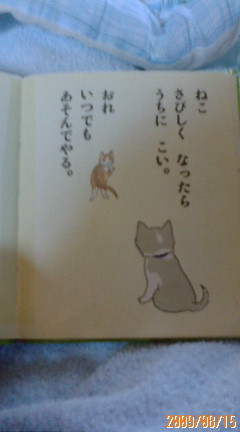 ねこ
さびしく なったら
うちに こい。
おれ
いつでも
あそんでやる。
2009/08/15